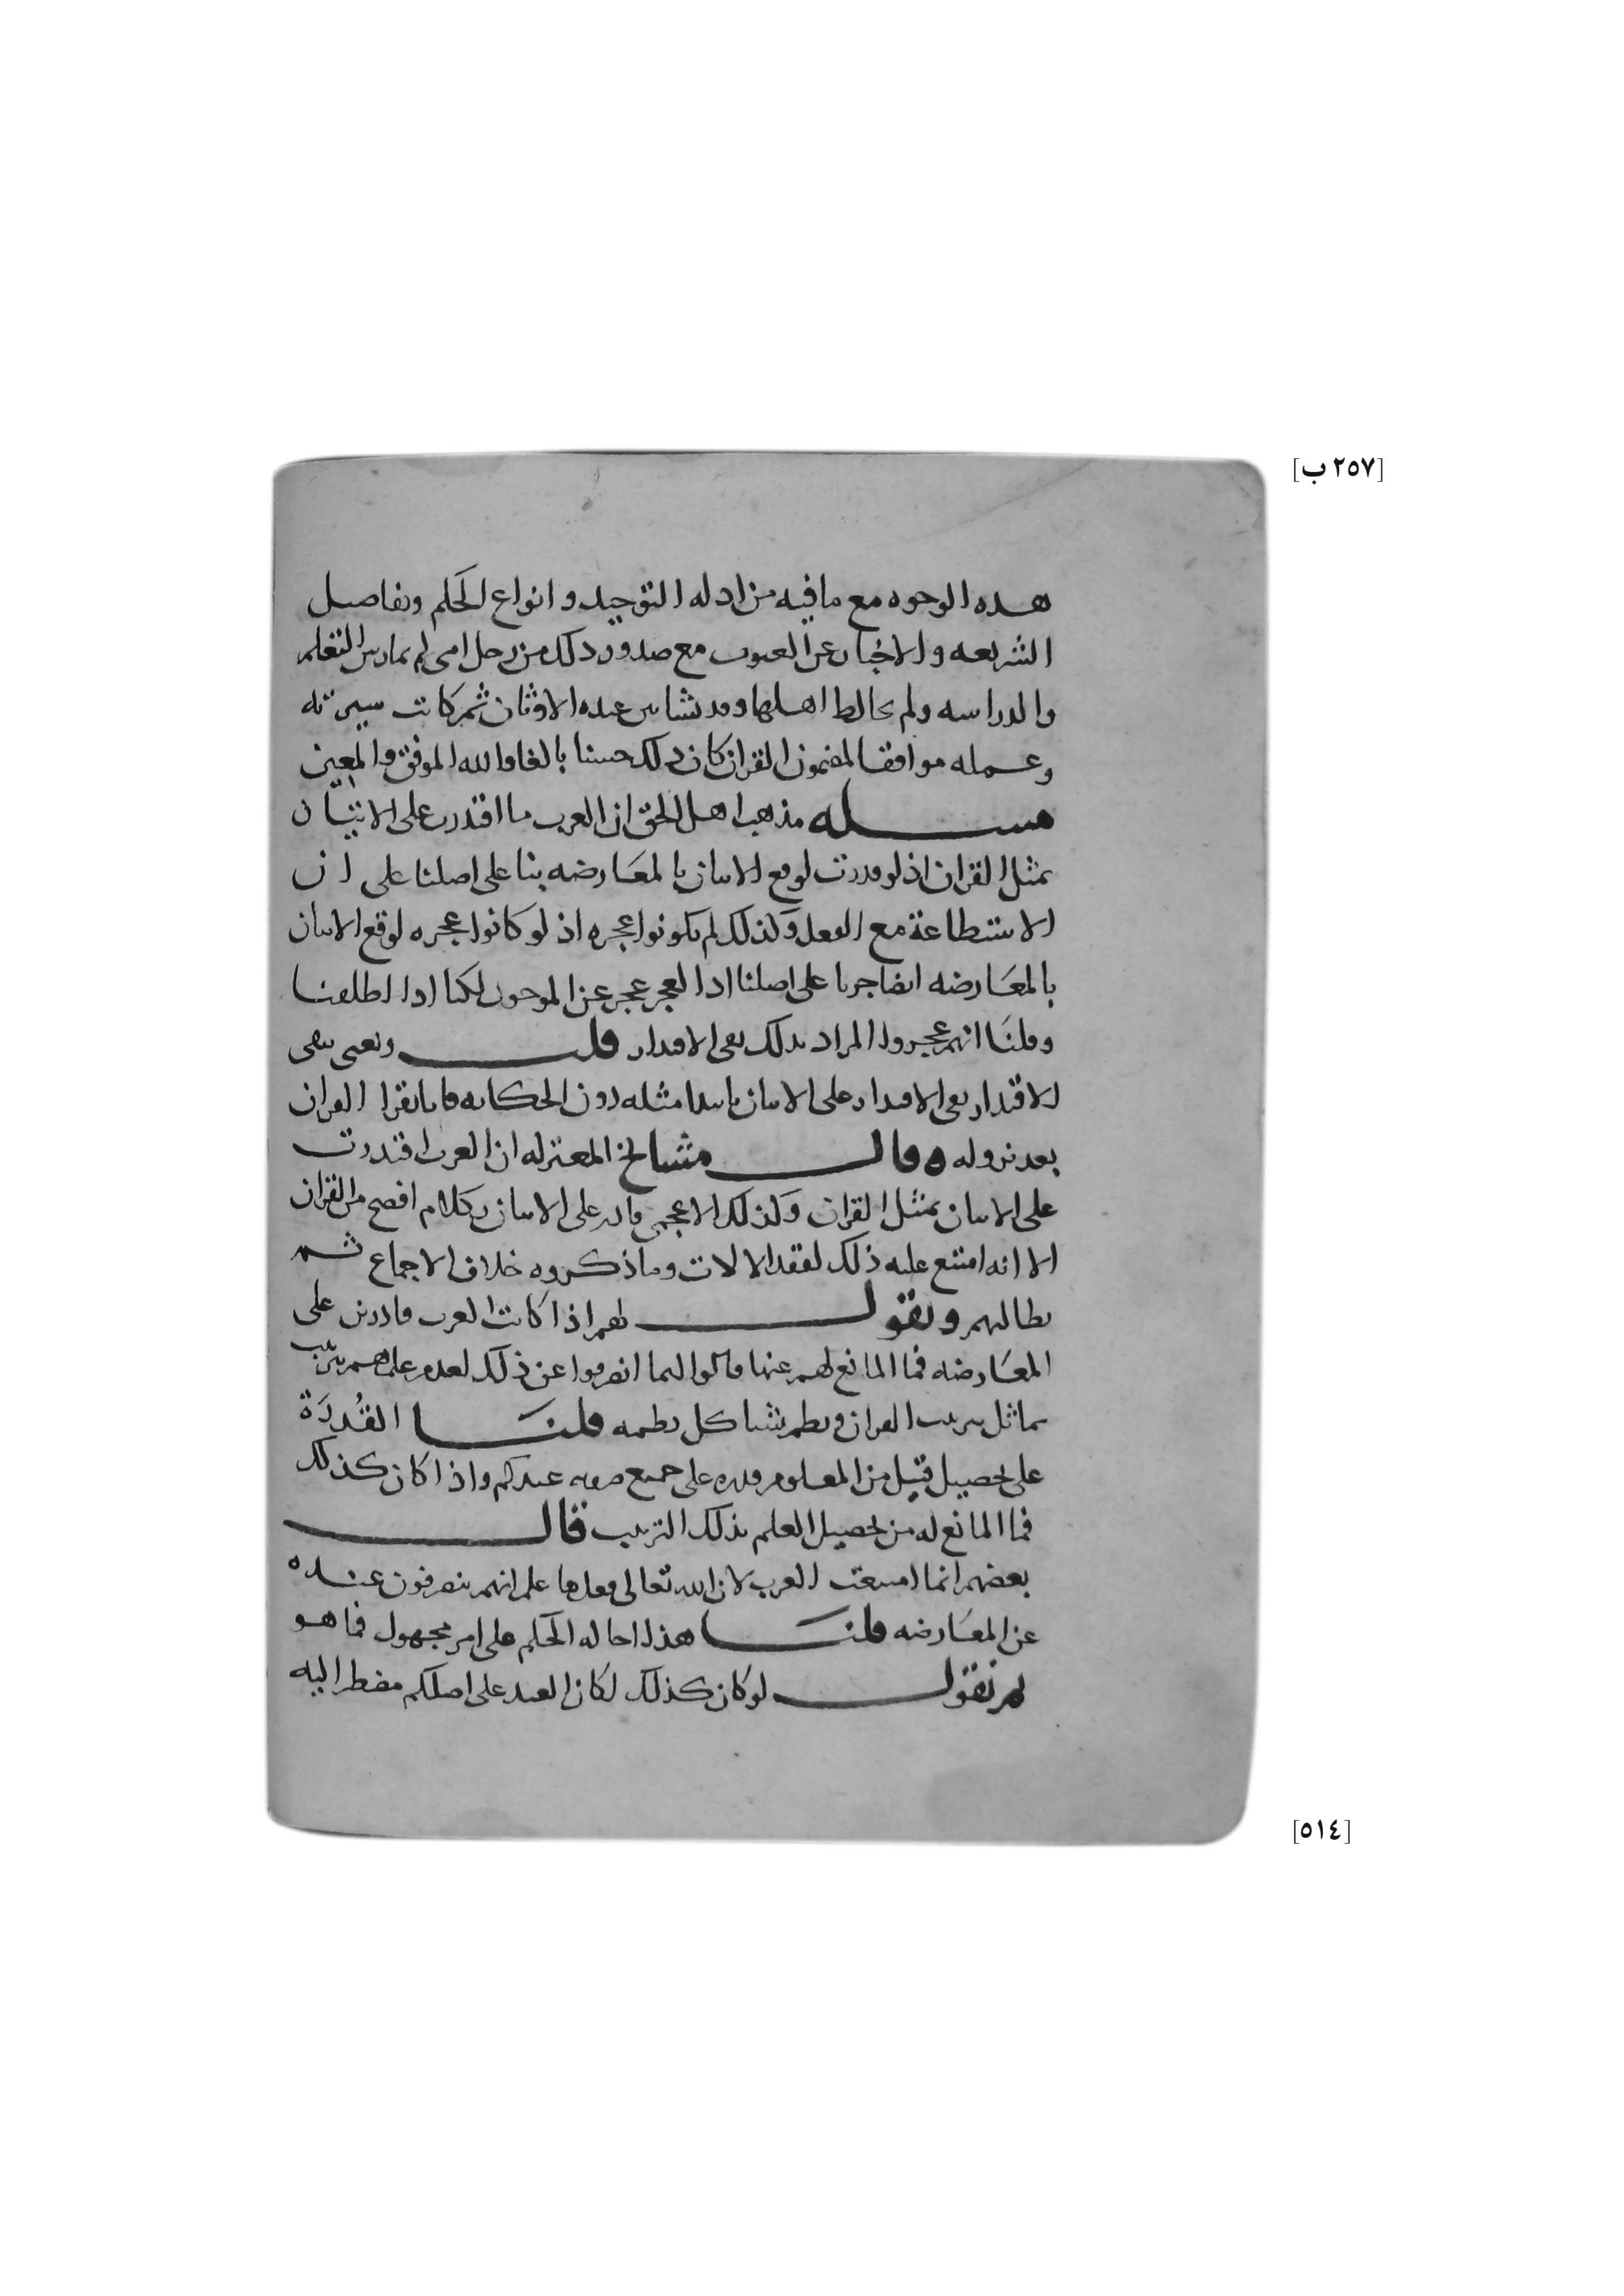 [٢٥٧ ب]
هذه الوجوه مع ما فيه من ادله التوحيد وانواع الحكم وتفاصيل
الشريعه والاخبار عن الغيوب مع صدور ذلك من رجل امي لم يمارس التعلم
والدراسه ولم يخالط اهلها وقد نشا بين عبده الاوثان ثم كانت سيرته
وعمله موافقا لمضمون القران كان ذلك حسنا بالغا والله الموفق والمعين
مسله مذهب اهل الحق ان العرب ما اقتدرت على الاتيان
بمثل القران اذ لو قدرت لوقع الاتيان بالمعارضه بنا على اصلنا على ان
الاستطاعة مع الفعل وكذلك لم يكونوا عجزه اذ لو كانوا عجزه لوقع الاتيان
بالمعارضه ايضا جريا على اصلنا اذ العجز عجز عن الموجود لكنا اذا اطلقنا
وقلنا انهم عجزوا المراد بذلك نفي الاقتدار قلت ونعني بنفي
الاقتدار نفي الاقتدار على الاتيان بابتدا مثله دون الحكايه فاننا نقرا القران
بعد نزوله ه وقال مشايخ المعتزله ان العرب اقتدرت
على الاتيان بمثل القران وكذلك الاعجمي قادر على الاتيان بكلام افصح من القران
الا انه امتنع عليه ذلك لفقد الالات وما ذكروه خلاف الاجماع ثم
نطالبهم ونقول لهم اذا كانت العرب قادرين على
المعارضه فما المانع لهم عنها قالوا انما انصرفوا عن ذلك لعدم علمهم بترتيب
يماثل ترتيب القران ونظم يشاكل نظمه قلنا القُدرَة
على تحصيل قبيل من المعلوم قدره على جميع صوبه عندكم واذا كان كذلك
فما المانع له من تحصيل العلم بذلك الترتيب قال
بعضهم انما امتنعت العرب لان الله تعالى فعل ما علم انهم ينصرفون عنده
عن المعارضه قلنا هذا احاله الحكم على امر مجهول فما هو
ثم نقول لو كان كذلك لكان العبد على اصلكم مضطرا اليه
[٥١٤]